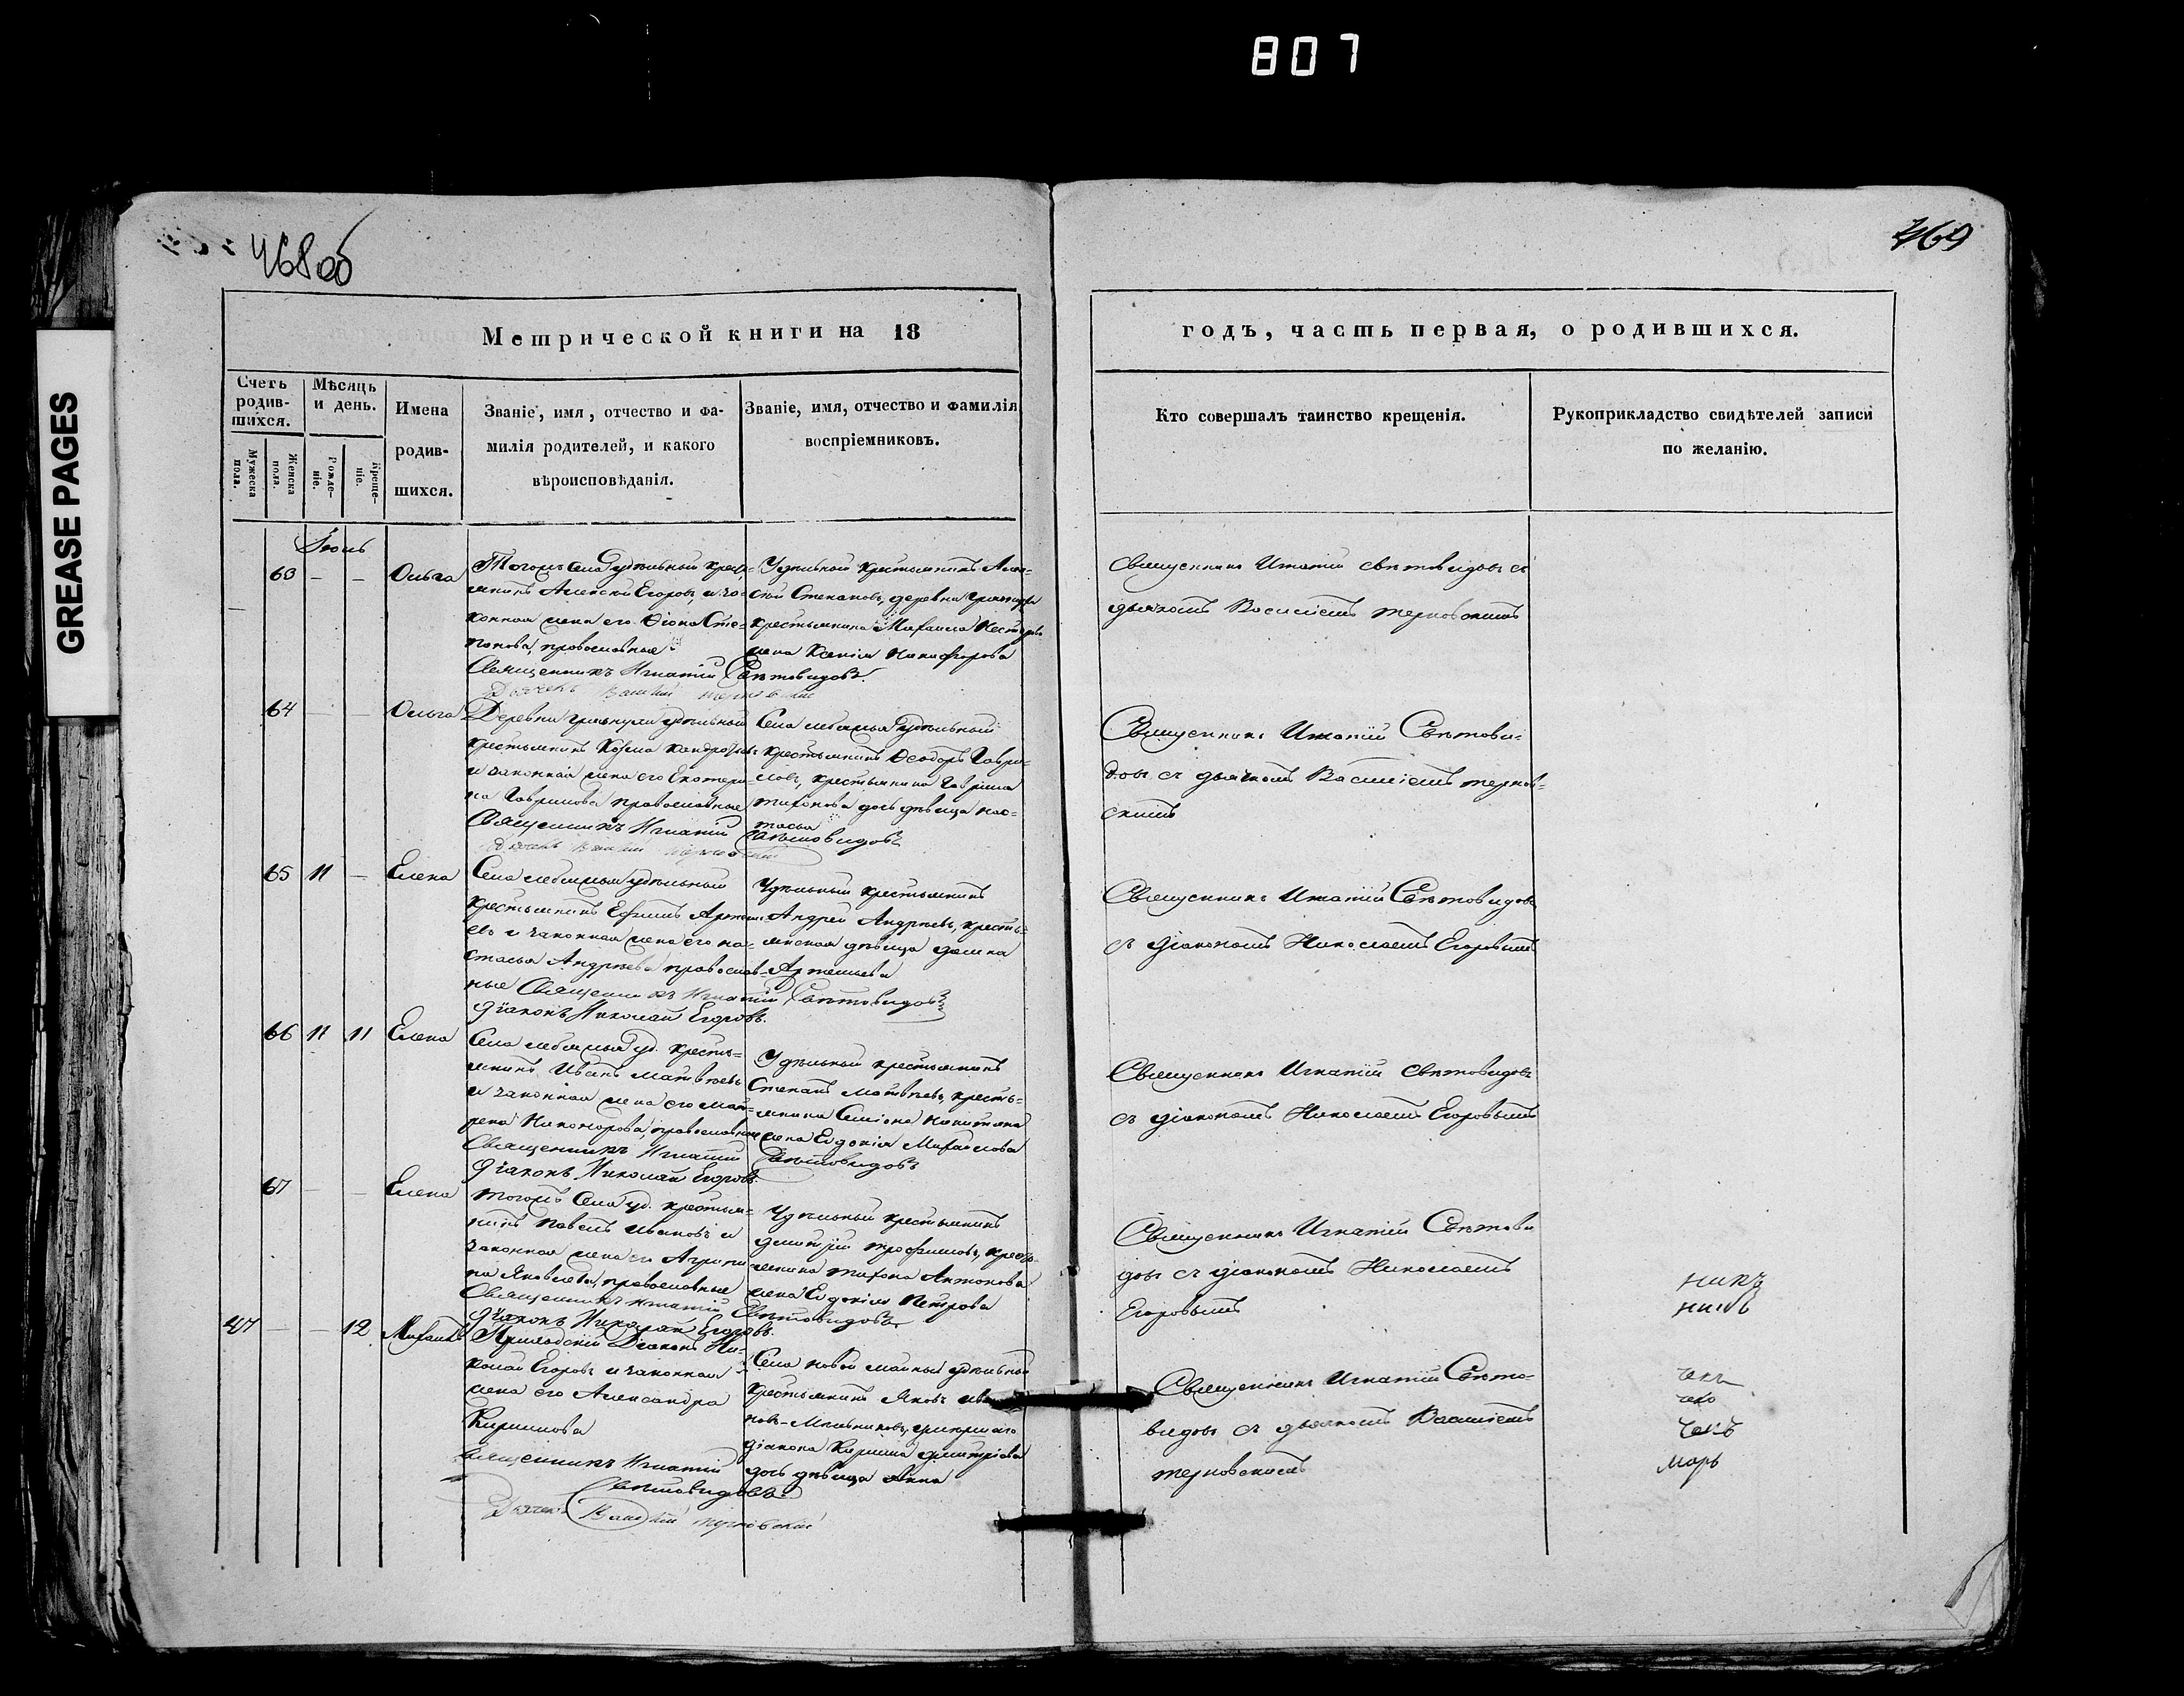 807
GREASE PAGES
468 об
469
Метрической книги на 18
годъ, часть первая, о родившихся.
Счетъ родившихся.
Мѣсяць и день.
Имена родившихся.
Званіе, имя, отчество и фамилія родителей, и какого вѣроисповѣданія.
Званіе, имя, отчество и фамилія воспріемниковъ.
Кто совершалъ таинство крещенія.
Рукоприкладство свидѣтелей записи по желанію.
Мужеска пола.
Женска пола.
Рожденіе.
Крещеніе.
Іюль
63 – – Ольга
Тогожъ села удѣльный крес-
янинъ Алексѣй Егоровъ, и за-
конная жена его Ѳіона Сте-
панова, православные
Священникъ Игнатій Свѣтовидовъ.
Дьячекъ Василій Терновскій
Удѣльный крестьянинъ Алек-
сѣй Степановъ, деревни
крестьянина Михаила
жена Ксенія Никифорова
Священникъ Игнатій Свѣтовидовъ съ
дьячкомъ Василіемъ Терновскимъ
64 – – Ольга
Деревни удѣльный
крестьянинъ Козма
и законная жена его Екатери-
на Гаврилова православные
Священникъ Игнатій Свѣтовидовъ
Дьячекъ Василій Терновскій
Села удѣльный
крестьянинъ Ѳеодоръ Гаври-
ловъ, крестьянина Гаврила
Тихонова дочь дѣвица Нас-
тасья
Священникъ Игнатій Свѣтови-
довъ съ дьячкомъ Василіемъ Тернов-
скимъ
65 11 – Елена
Села удѣльный
крестьянинъ Ефимъ
и законная жена его На-
стасья Андреева православ-
ные Священникъ Игнатій Свѣтовидовъ
Діаконъ Николай Егоровъ.
Удѣльный крестьянинъ
Андрей Андреевъ, кресть-
янская дѣвица
Артемьева
Священникъ Игнатій Свѣтовидовъ
съ діакономъ Николаемъ Егоровымъ
66 11 11 Елена
Села уд. кресть-
янинъ Иванъ Матвѣевъ
и законная жена его Мат-
рена Никонорова, православные
Священникъ Игнатій Свѣтовидовъ
Діаконъ Николай Егоровъ.
Удѣльный крестьянинъ
Степанъ Матвѣевъ, кресть-
янина Семіона
жена Евдокія Михаилова
Священникъ Игнатій Свѣтовидовъ
съ діакономъ Николаемъ Егоровымъ
67 – – Елена
Тогожъ села уд. крестья-
нинъ Павелъ Ивановъ и
законная жена его Агрипи-
на Яковлева, православные
Священникъ Игнатій Свѣтовидовъ
Діаконъ Николай Егоровъ.
Удѣльный крестьянинъ
Димитрій Трофимовъ, кресть-
янина Тихона Антонова
жена Евдокія Петрова
Священникъ Игнатій Свѣтови-
довъ съ діакономъ Николаемъ
Егоровымъ
47 – – 12 Михаилъ
Приходскій Діаконъ Ни-
колай Егоровъ и законная
жена его Александра
Кирилова
Священникъ Игнатій
Свѣтовидовъ
Дьячекъ Василій Терновскій
Села Новой Майны удѣльный
крестьянинъ Яковъ Ива-
новъ
діакона Кирилла Димитріева
дочь дѣвица Анна
Священникъ Игнатій Свѣто-
видовъ съ дьячкомъ Василіемъ
Терновскимъ
никъ